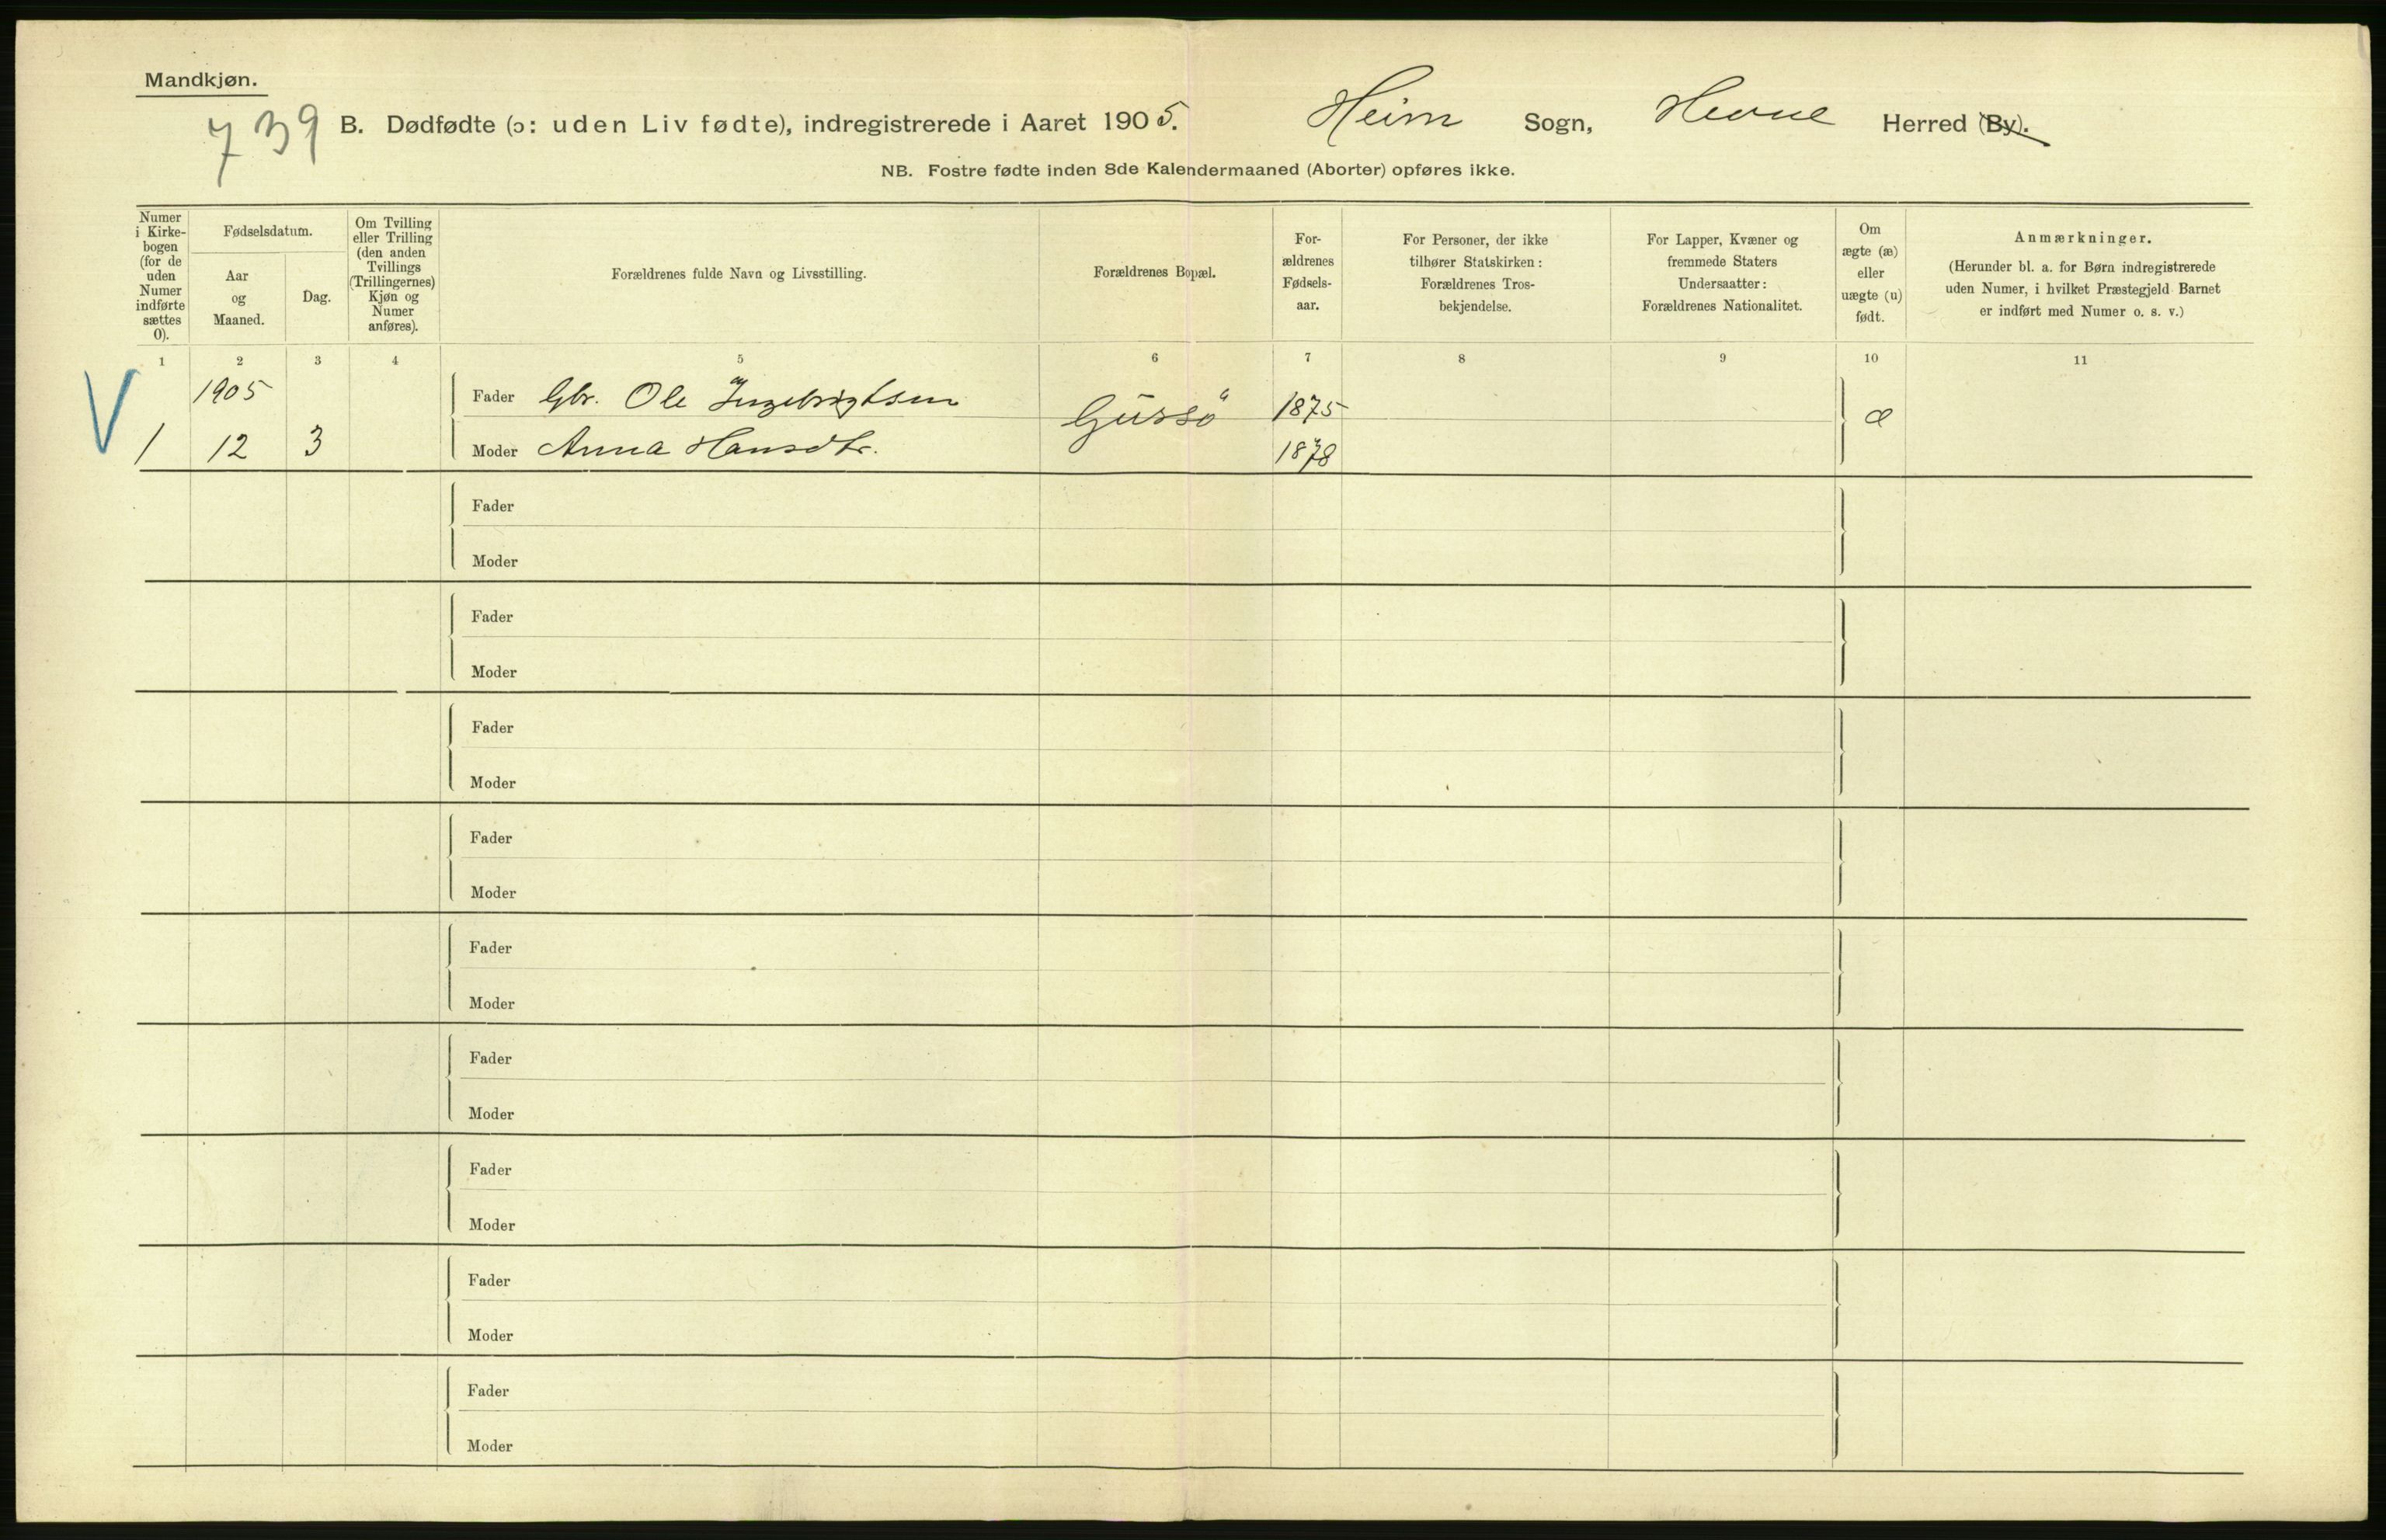 Mandkjøn.
739 B. Dødfødte (ɔ: uden Liv fødte), indregistrerede i Aaret 1905. Heim Sogn, Hevne Herred (By).
NB. Fostre fødte inden 8de Kalendermaaned (Aborter) opføres ikke.
Numer i Kirke-bogen (for de uden Numer indførte sættes 0).
Fødselsdatum.
Aar og Maaned.
Dag.
Om Tvilling eller Trilling (den anden Tvillings (Trillingernes) Kjøn og Numer anføres).
Forældrenes fulde Navn og Livsstilling.
Forældrenes Bopæl.
For-ældrenes Fødsels-aar.
For Personer, der ikke tilhører Statskirken: Forældrenes Tros-bekjendelse.
For Lapper, Kvæner og fremmede Staters Undersaatter: Forældrenes Nationalitet.
Om ægte (æ) eller uægte (u) født.
Anmærkninger.
(Herunder bl. a. for Børn indregistrerede uden Numer, i hvilket Præstegjeld Barnet er indført med Numer o. s. v.)
1 2 3 4 5 6 7 8 9 10 11
V 1905 Fader Gbr. Ole Ingebrigtsen Gursö 1875 æ
1 12 3 Moder Anna Hansdtr. 1878
Fader
Moder
Fader
Moder
Fader
Moder
Fader
Moder
Fader
Moder
Fader
Moder
Fader
Moder
Fader
Moder
Fader
Moder